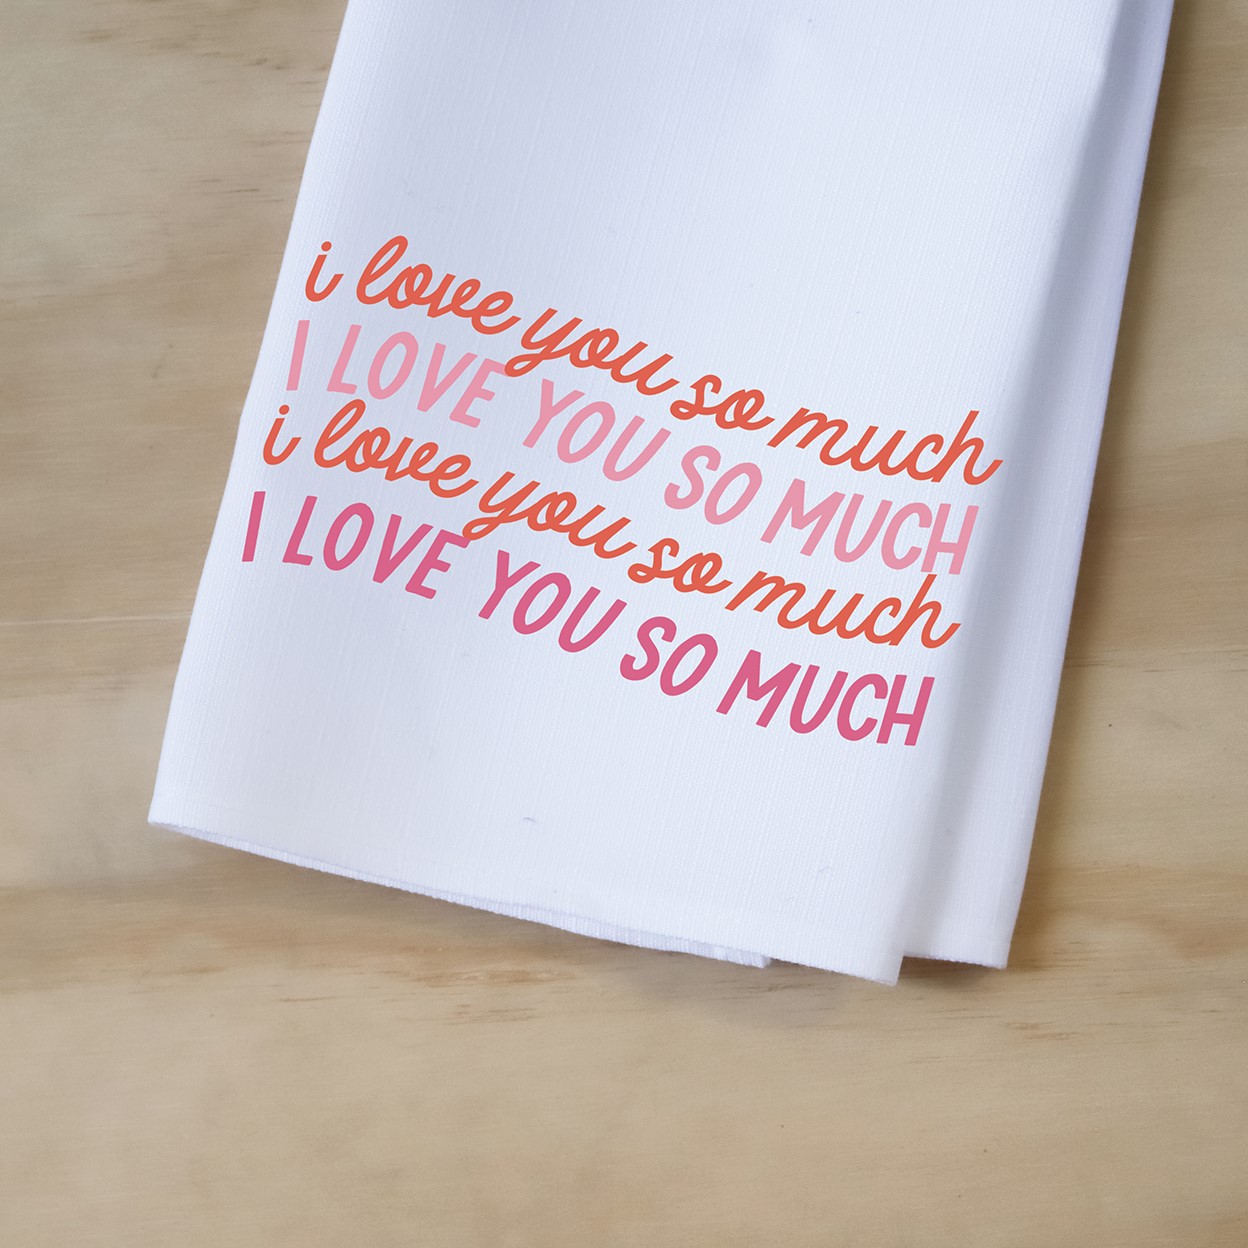 i love you so much
I LOVE YOU SO MUCH
i love you so much
I LOVE YOU SO MUCH